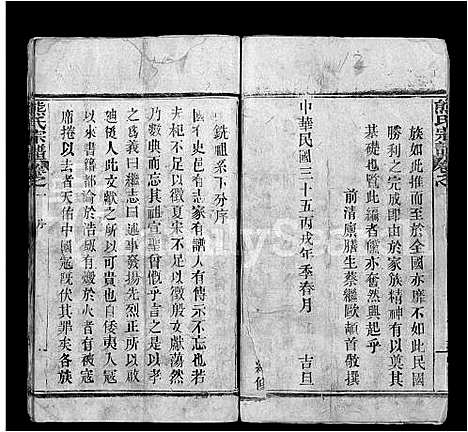 熊氏宗譜
族如此推而至於全國亦靡不如此民國
勝利之完成即由於家族精神有以奠其
基礎也覽此編者儻亦奮然興起乎
前清廩膳生蔡繼歐頓首敬撰
中華民國三十五丙戌年季春月 吉旦
銑祖系下分序
國有史邑有志家有譜人有傳示不忘也若
杞宋不足以徵夏宋不足以徵殷文獻蕩然
乃數典而忘其祖宣聖嘗慨乎言之是以孝
之為義曰繼志曰述事發揚光烈正所以啟
迪後人此文獻之大可以已也自倭夷入寇
以來書籍都淪於浩刧有燬於火者有被寇
席捲以去者天佑中國寇既伏其罪矣各族
熊氏宗譜
序